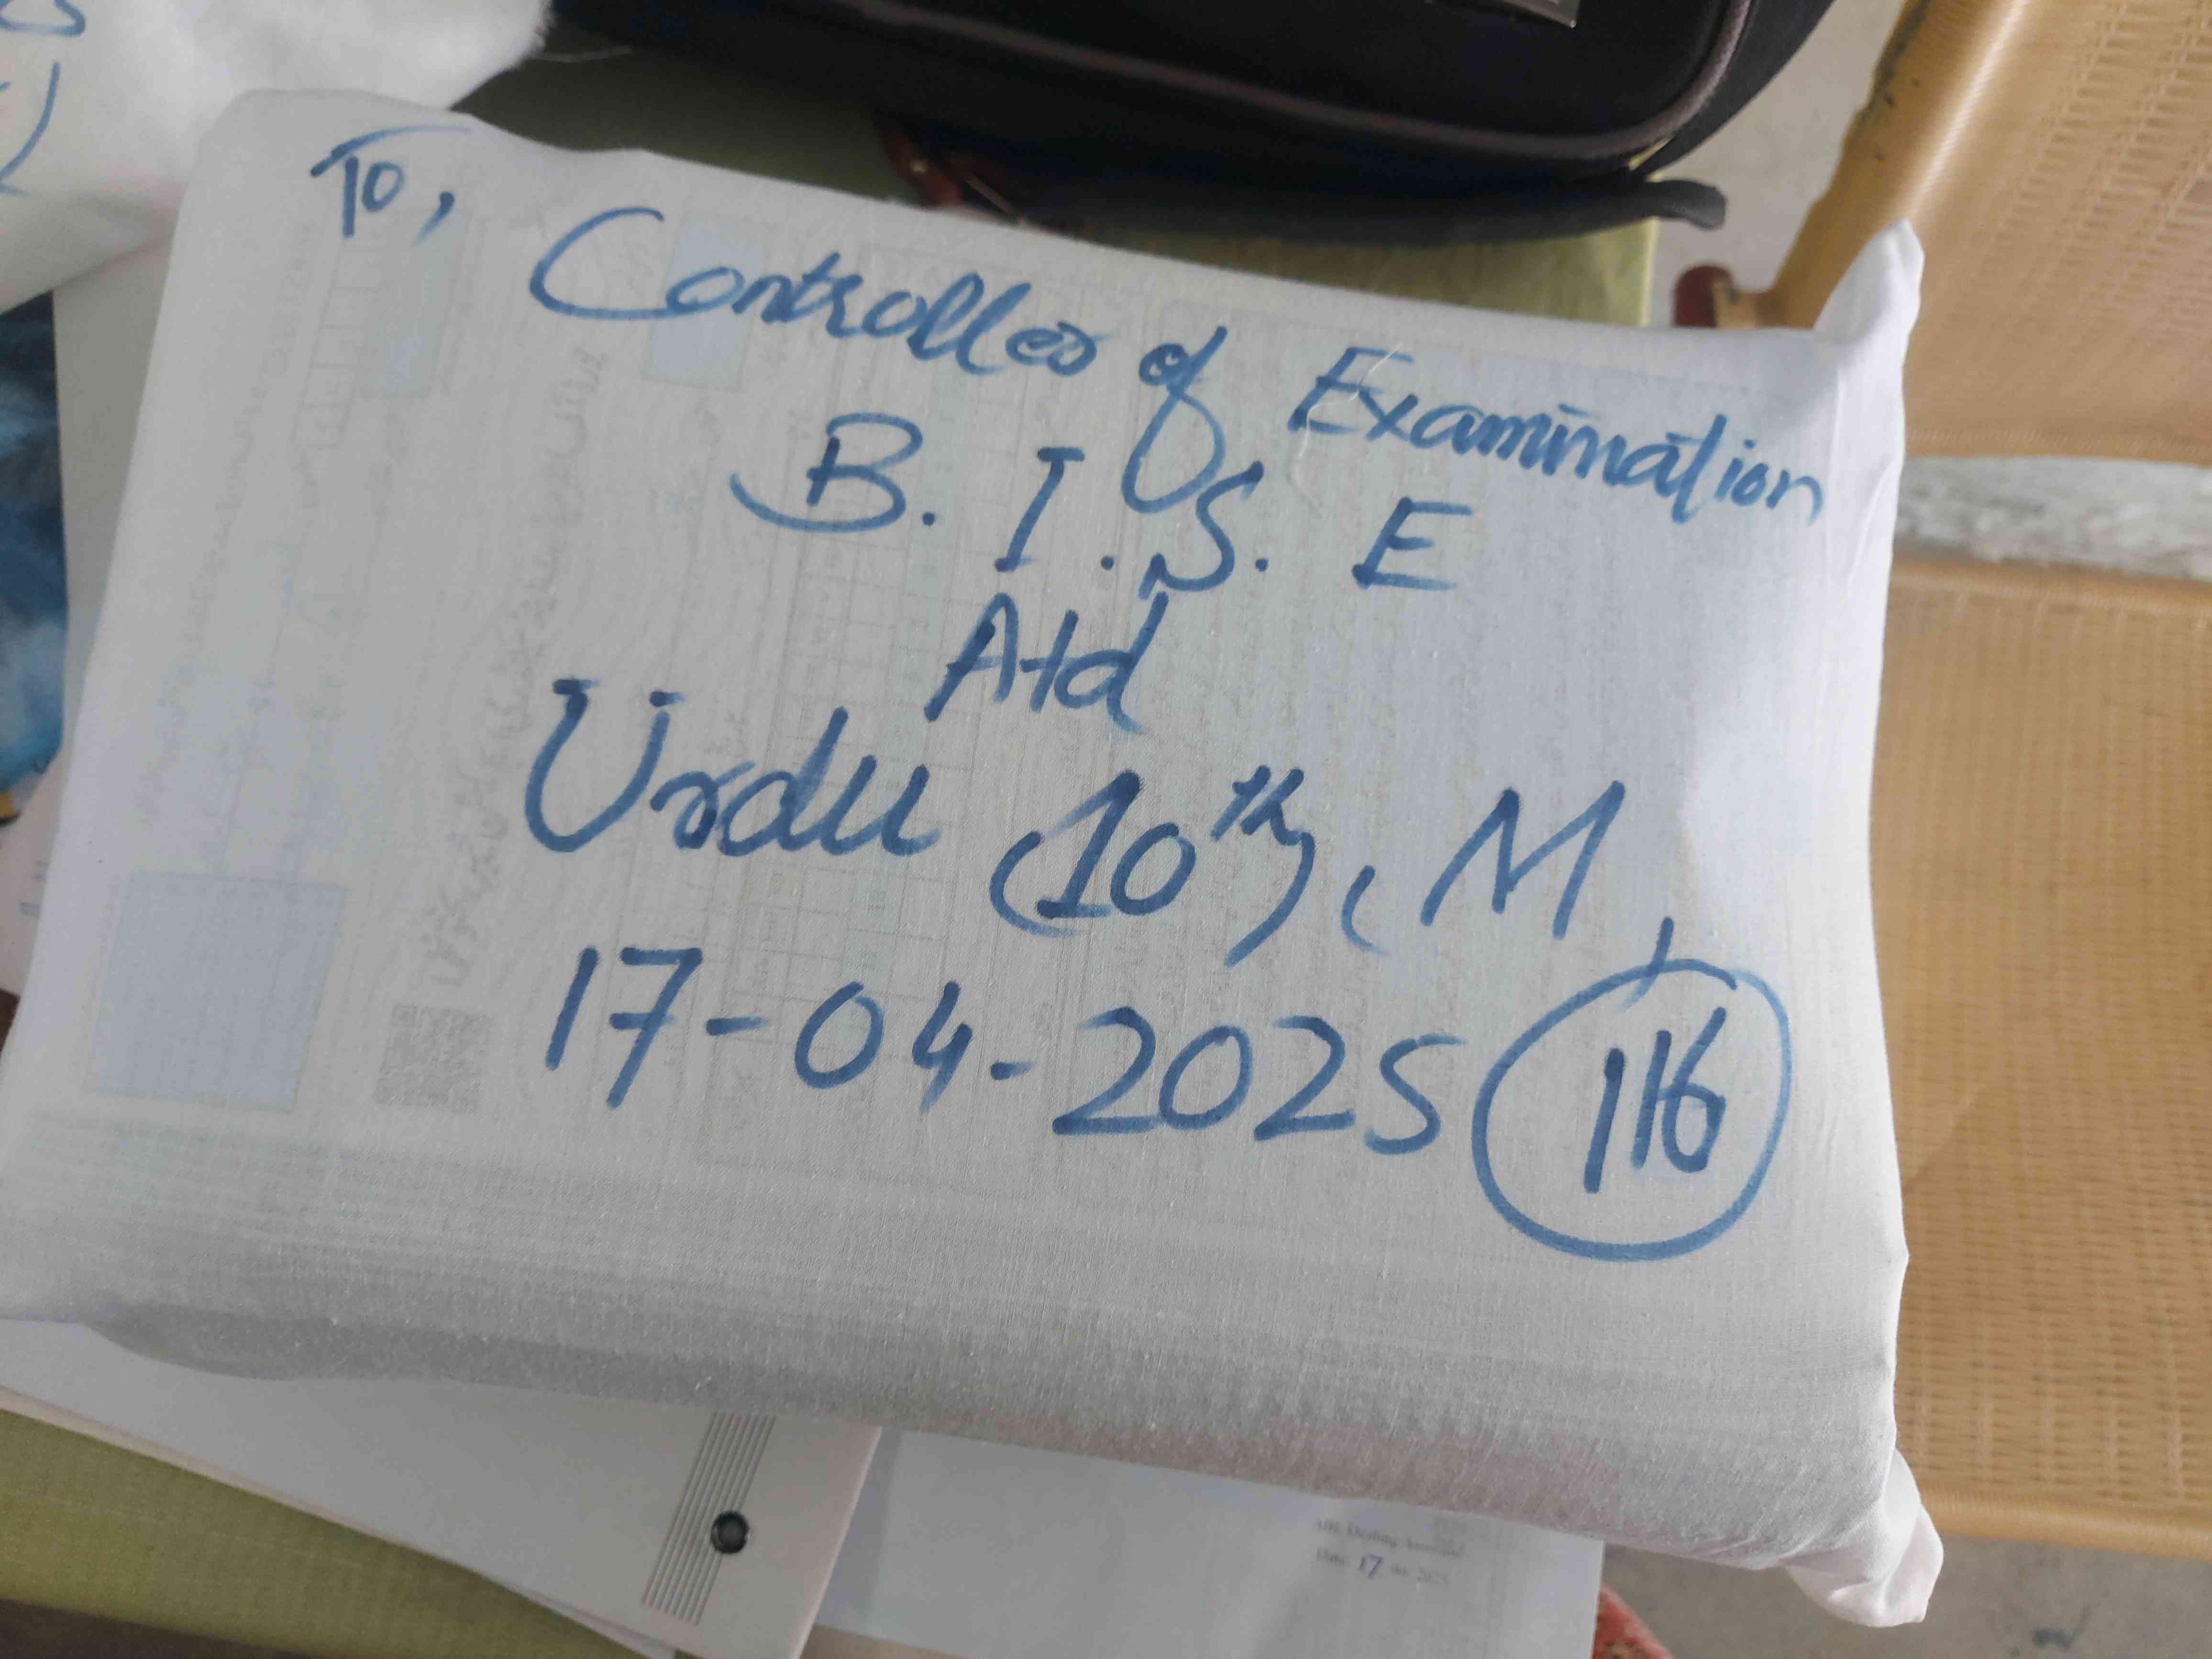 To,
Controller of Examination
B. I. S. E
Atd
Urdu (10th), (M)
17-04-2025 (116)
Date: 17